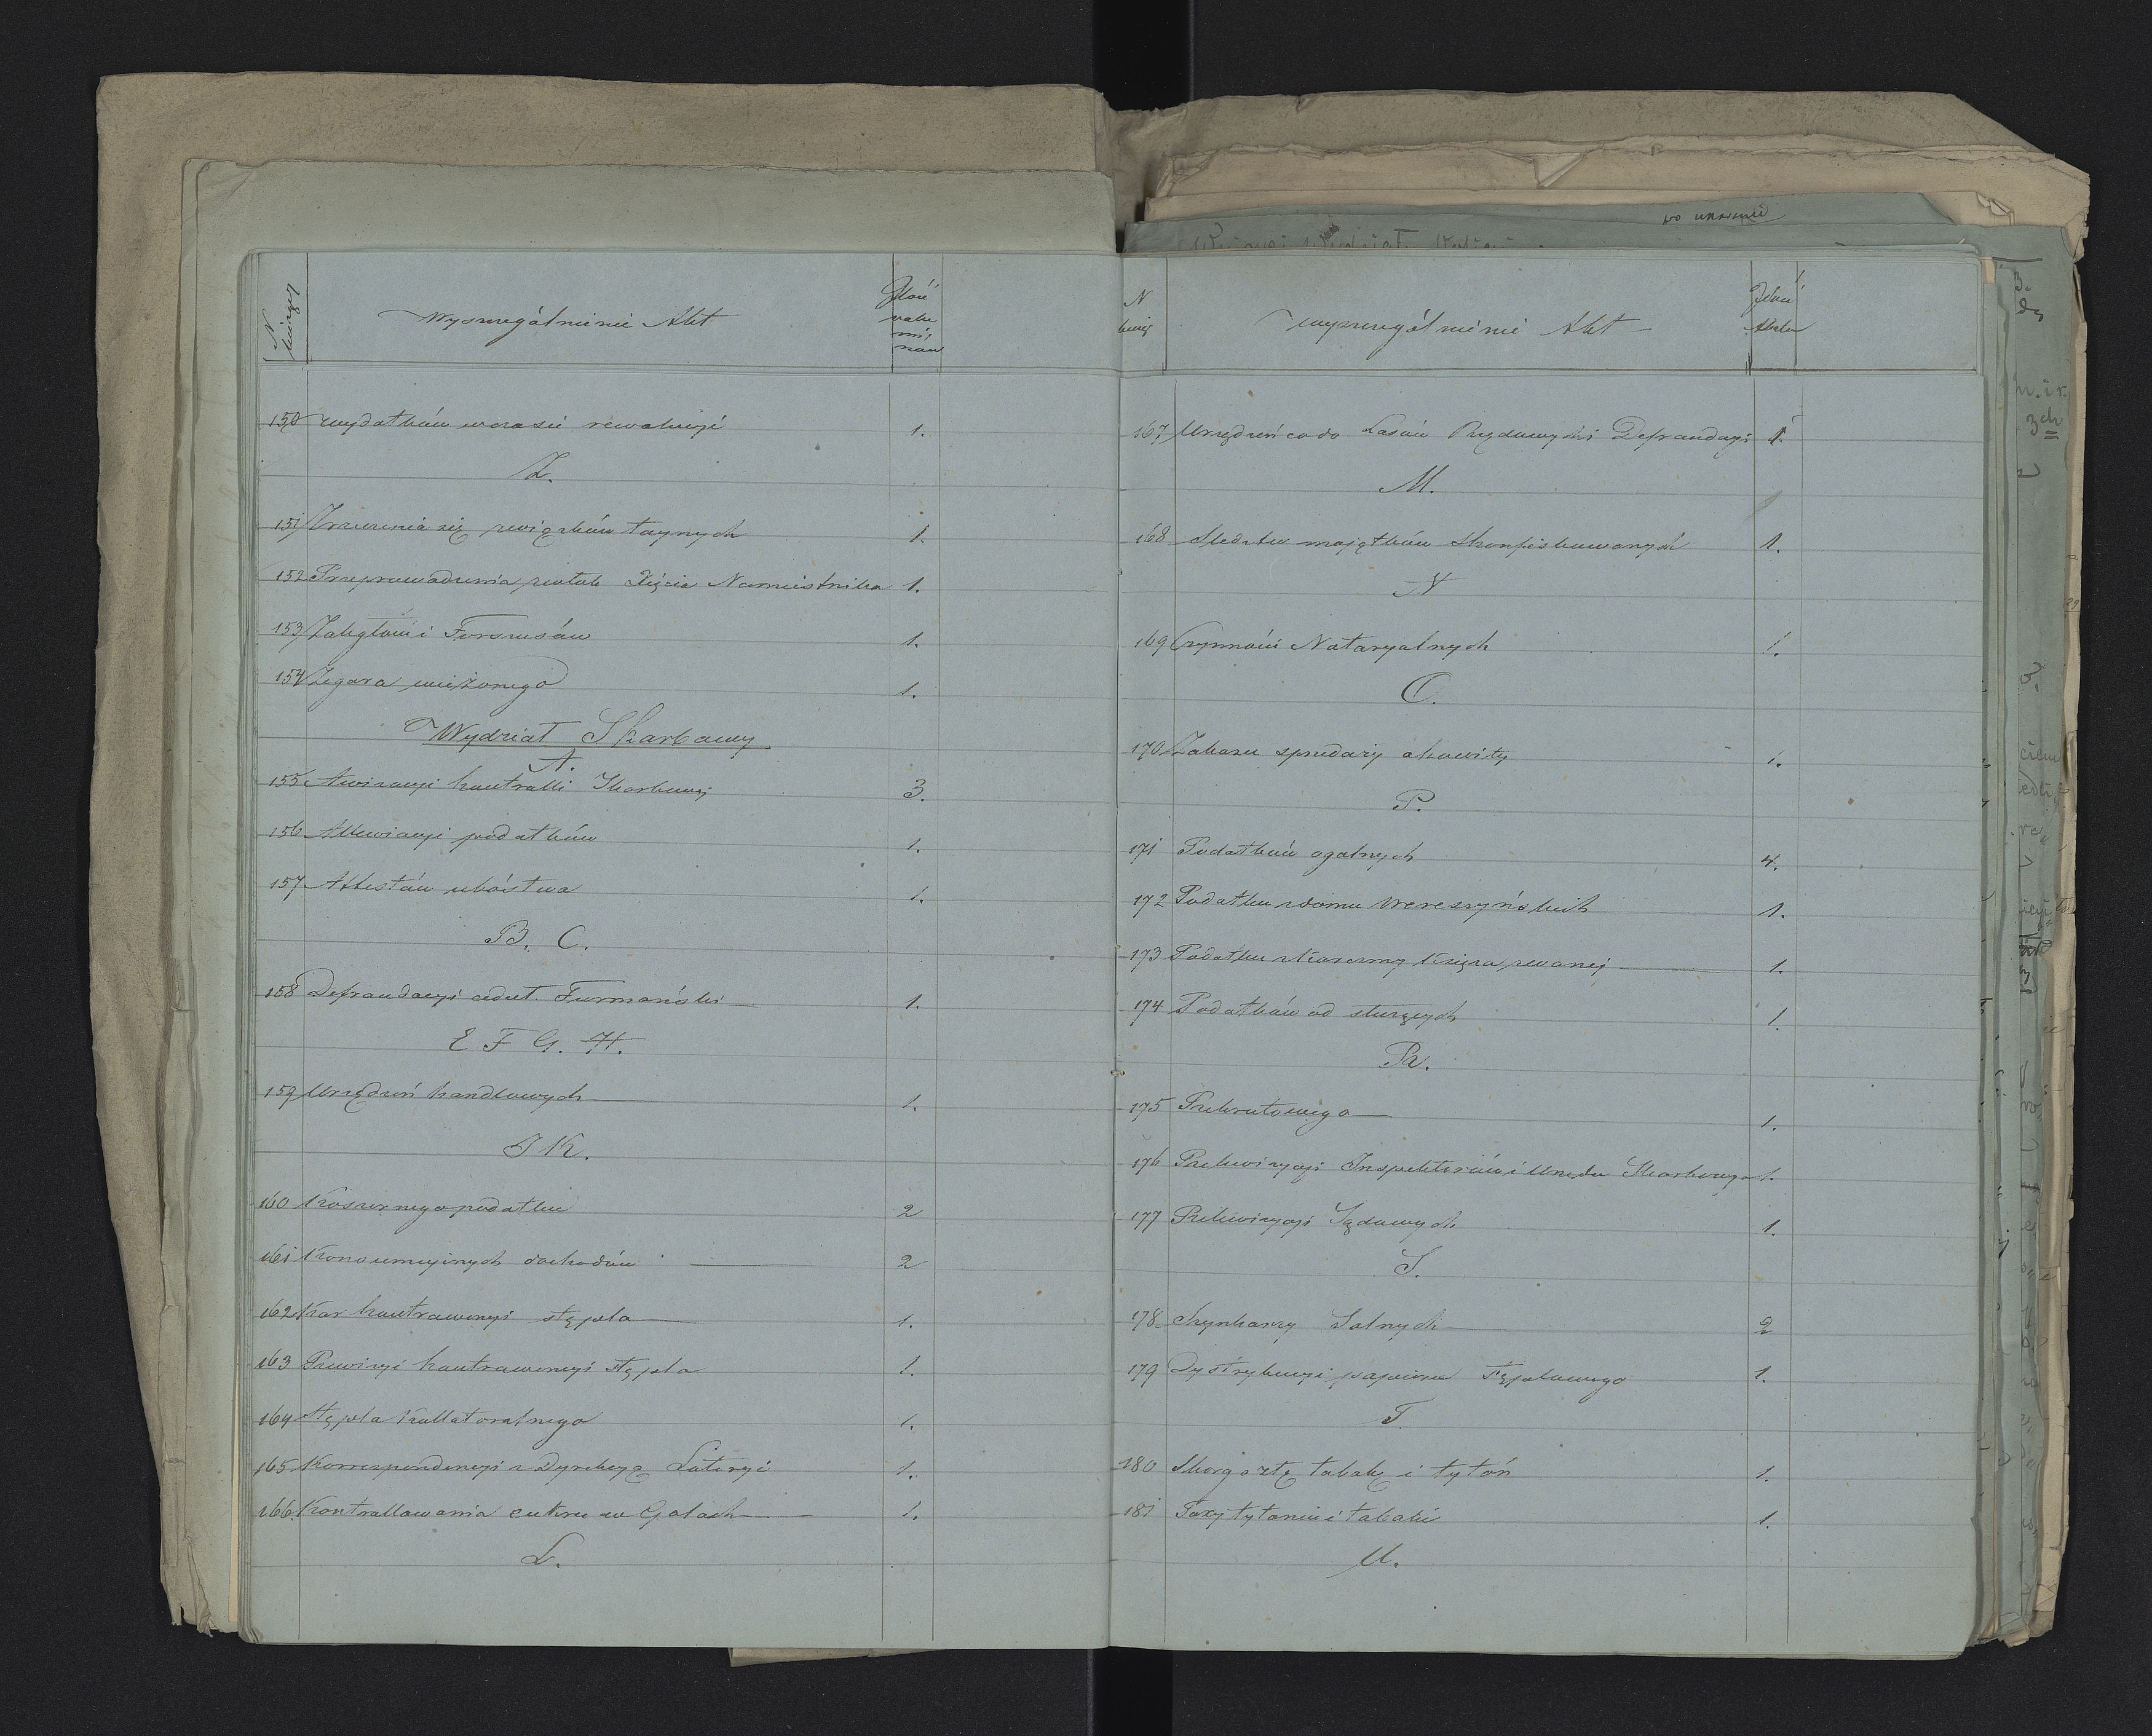 N
bieżący
Wyszczególnienie Akt
Ilość
volu
mi,
now
150 wydatków wczasie rewolucyi 1.
Z.
151 Zrzeczenia się związków taynych 1.
152 Przeprowadzenia zwłok Xięcia Namiestnika 1.
153 Zaległości Forszusów 1.
154 Zegara wieżowego 1.
Wydział Skarbowy
A.
155 Awizacyi kontrolli Skarbowej 3.
156 Allewiacyi podatków 1.
157 Attestów ubóstwa 1.
B. C.
158 Defraudacyi adiut. Furmański 1.
E F G. H.
159 Urządzeń handlowych 1.
I K.
160 Koszernego podatku 2
161 Konsumcyinych dochodów 2
162 Kar kontrawencyi stępla 1.
163 kontrawencyi stępla 1.
164 Stępla Kollatoralnego 1.
165 Korrespondencyi z Dyrekcyą Loteryi 1.
166 Kontrollowania cukru w Golach 1.
L.
N
bieżą
wyszczególnienie Akt
Ilość
167 Urządzeń co do Lasów Rządowych i Defraudacyi 1.
M.
168 Śledztw majątków skonfiskowanych 1.
N
169 Czynności Notaryalnych 1.
O.
170 Zakazu sprzedaży okowity 1.
P.
171 Podatków ogólnych 4.
172 Podatku zdomu Wereszyńskich 1.
173 Podatku z Karczmy 1.
174 Podatków od służących 1.
R.
175 Rekrutowego 1.
176 Rekwizycyi Inspektorów i Urzędu Skarbowego 1.
177 Rekwizycyi Sądowych 1.
S.
178 Szynkarzy Solnych 2
179 Dystrybucyi papieru Stęplowego 1.
T.
180 Skarg o złą tabakę i tytoń 1.
181 Taxy tytoniu i tabaki 1.
U.